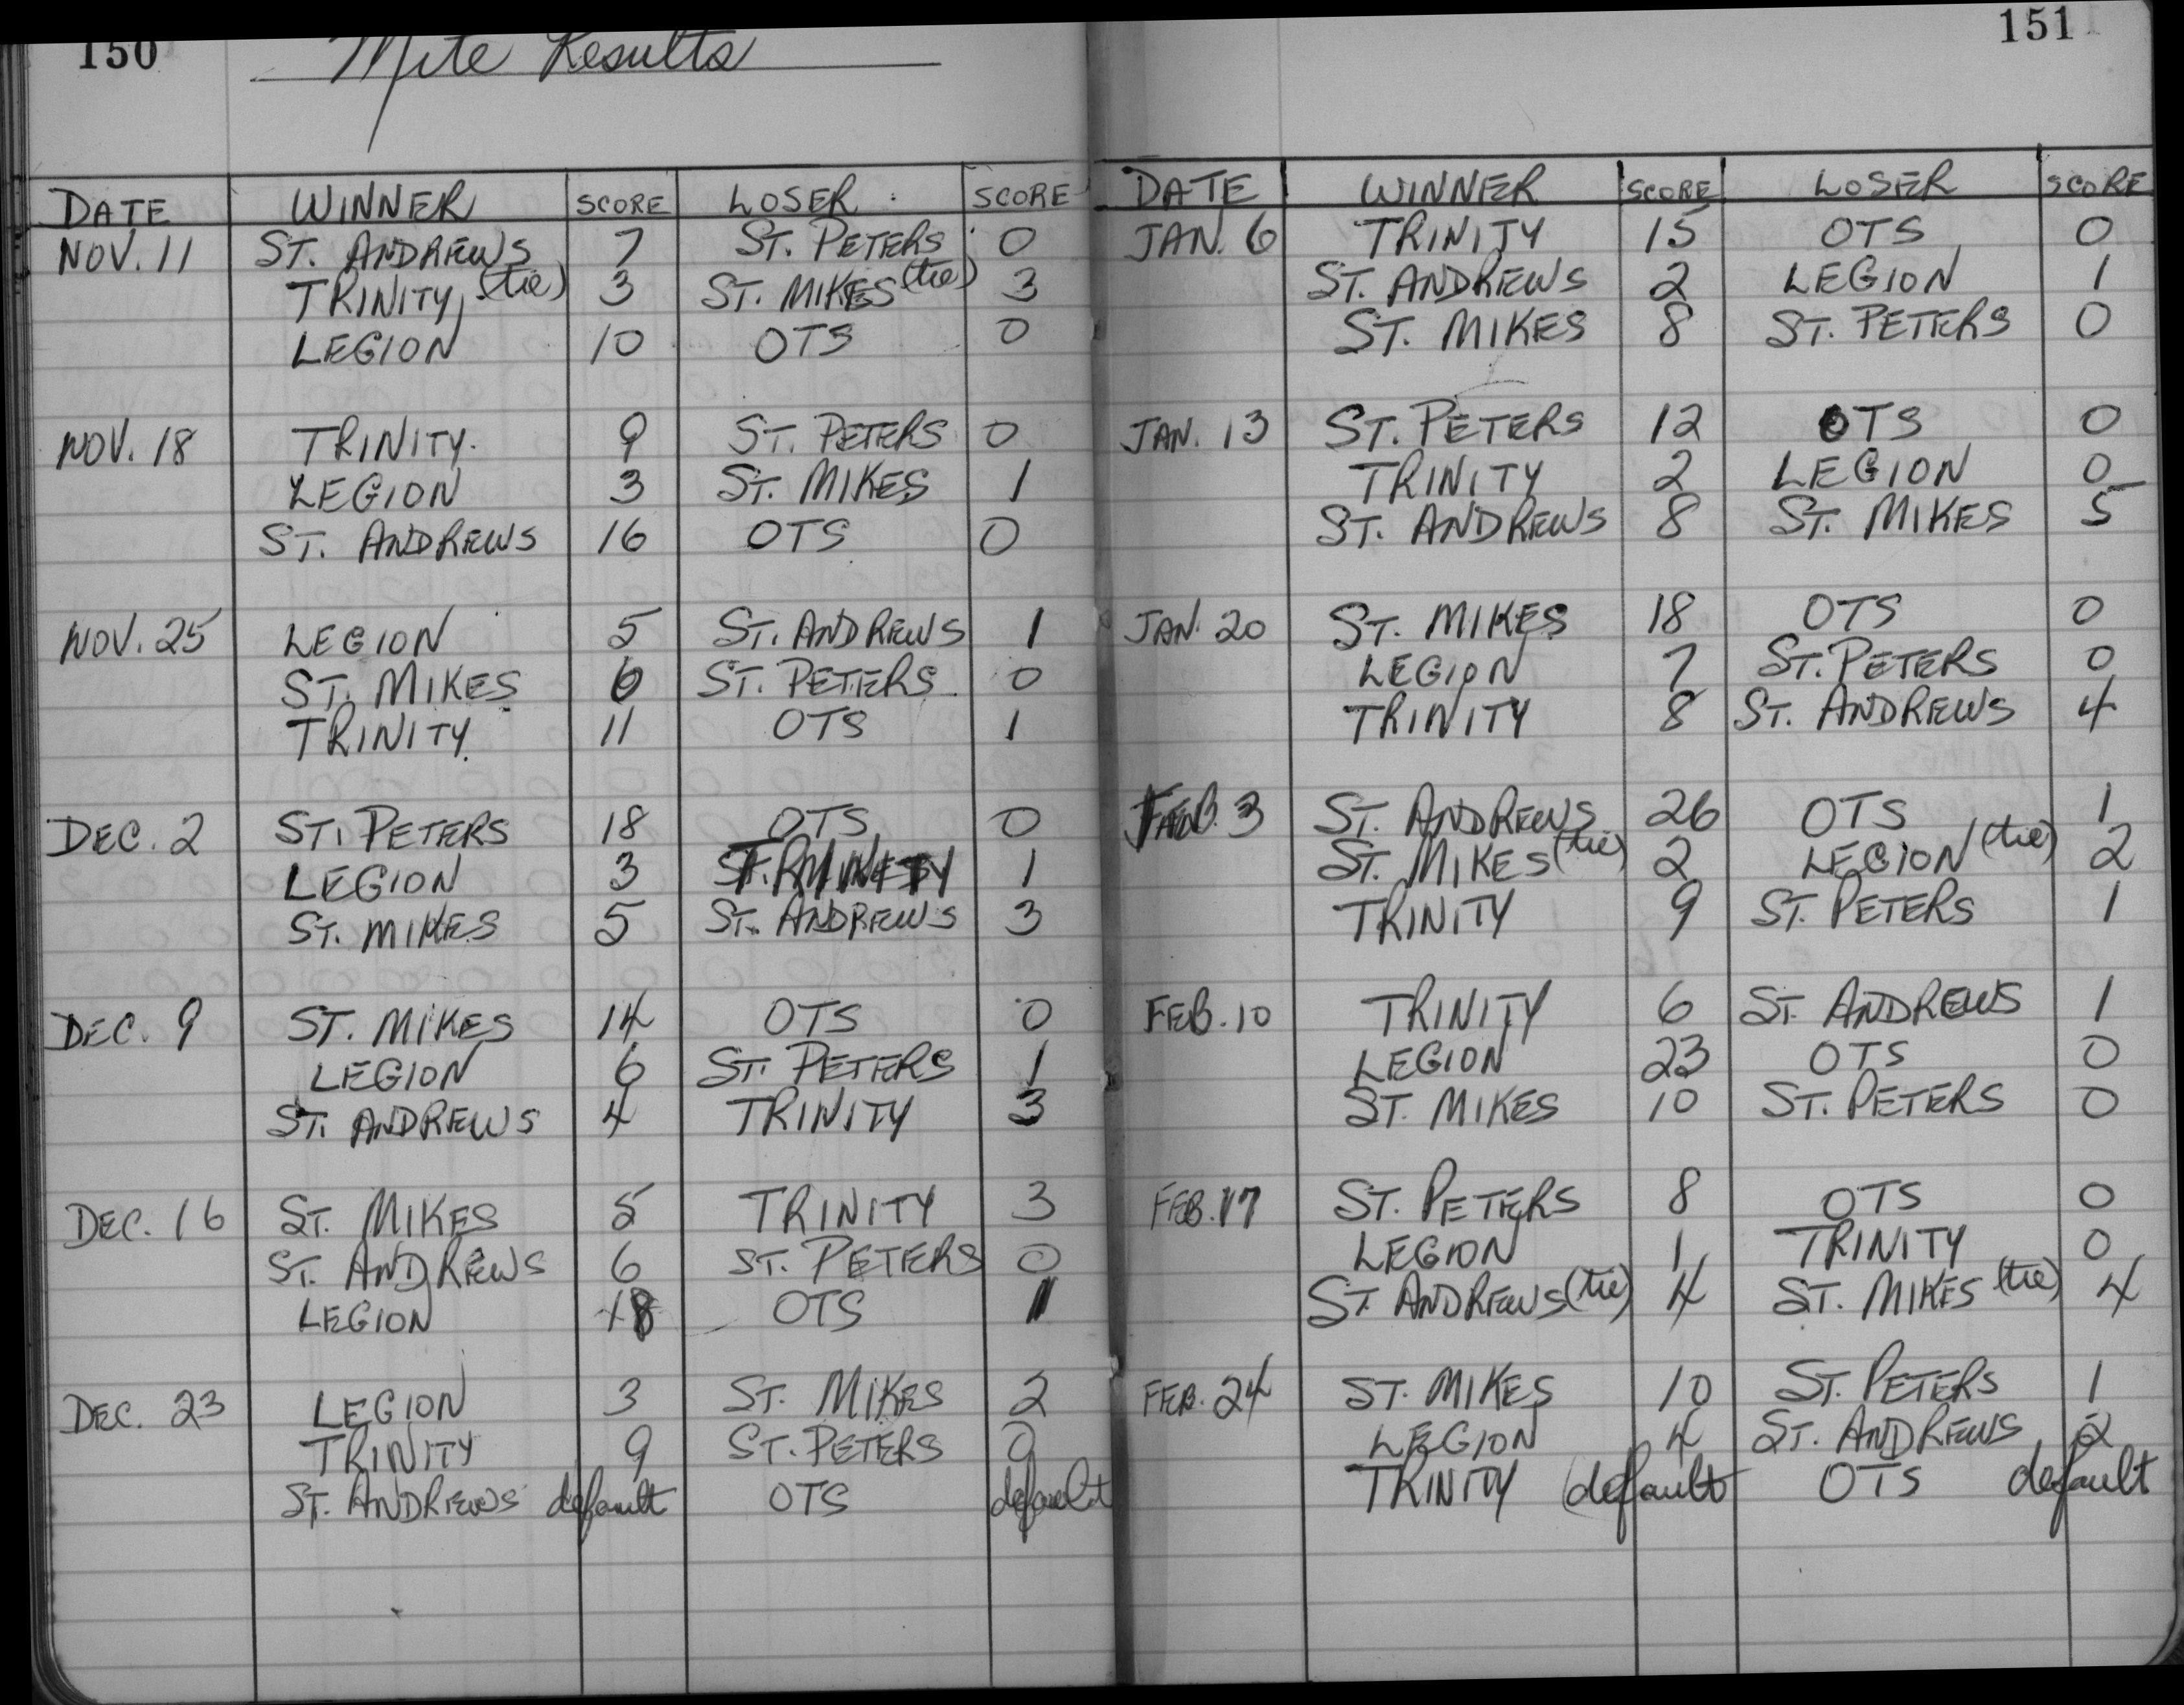 150
Mite Results
DATE WINNER SCORE LOSER SCORE
NOV. 11 ST. ANDREWS 7 ST. PETERS 0
TRINITY (tie) 3 ST. MIKES (tie) 3
LEGION 10 OTS 0
NOV. 18 TRINITY. 9 ST. PETERS 0
LEGION 3 ST. MIKES 1
ST. ANDREWS 16 OTS 0
NOV. 25 LEGION 5 ST. ANDREWS 1
ST. MIKES 6 ST. PETERS 0
TRINITY. 11 OTS 1
DEC. 2 ST. PETERS 18 OTS 0
LEGION 3 TRINITY 1
ST. MIKES 5 ST. ANDREWS 3
DEC. 9 ST. MIKES 14 OTS 0
LEGION 6 ST. PETERS 1
ST. ANDREWS 4 TRINITY 3
DEC. 16 ST. MIKES 5 TRINITY 3
ST. ANDREWS 6 ST. PETERS 0
LEGION 18 OTS 1
DEC. 23 LEGION 3 ST. MIKES 2
TRINITY 9 ST. PETERS 0
ST. ANDREWS default OTS default
151
DATE WINNER SCORE LOSER SCORE
JAN. 6 TRINITY 15 OTS 0
ST. ANDREWS 2 LEGION 1
ST. MIKES 8 ST. PETERS 0
JAN. 13 ST. PETERS 12 OTS 0
TRINITY 2 LEGION 0
ST. ANDREWS 8 ST. MIKES 5
JAN. 20 ST. MIKES 18 OTS 0
LEGION 7 ST. PETERS 0
TRINITY 8 ST. ANDREWS 4
FEB. 3 ST. ANDREWS 26 OTS 1
ST. MIKES (tie) 2 LEGION (tie) 2
TRINITY 9 ST. PETERS 1
FEB. 10 TRINITY 6 ST. ANDREWS 1
LEGION 23 OTS 0
ST. MIKES 10 ST. PETERS 0
FEB. 17 ST. PETERS 8 OTS 0
LEGION 1 TRINITY 0
ST. ANDREWS (tie) 4 ST. MIKES (tie) 4
FEB. 24 ST. MIKES 10 ST. PETERS 1
LEGION 4 ST. ANDREWS 2
TRINITY (default OTS default